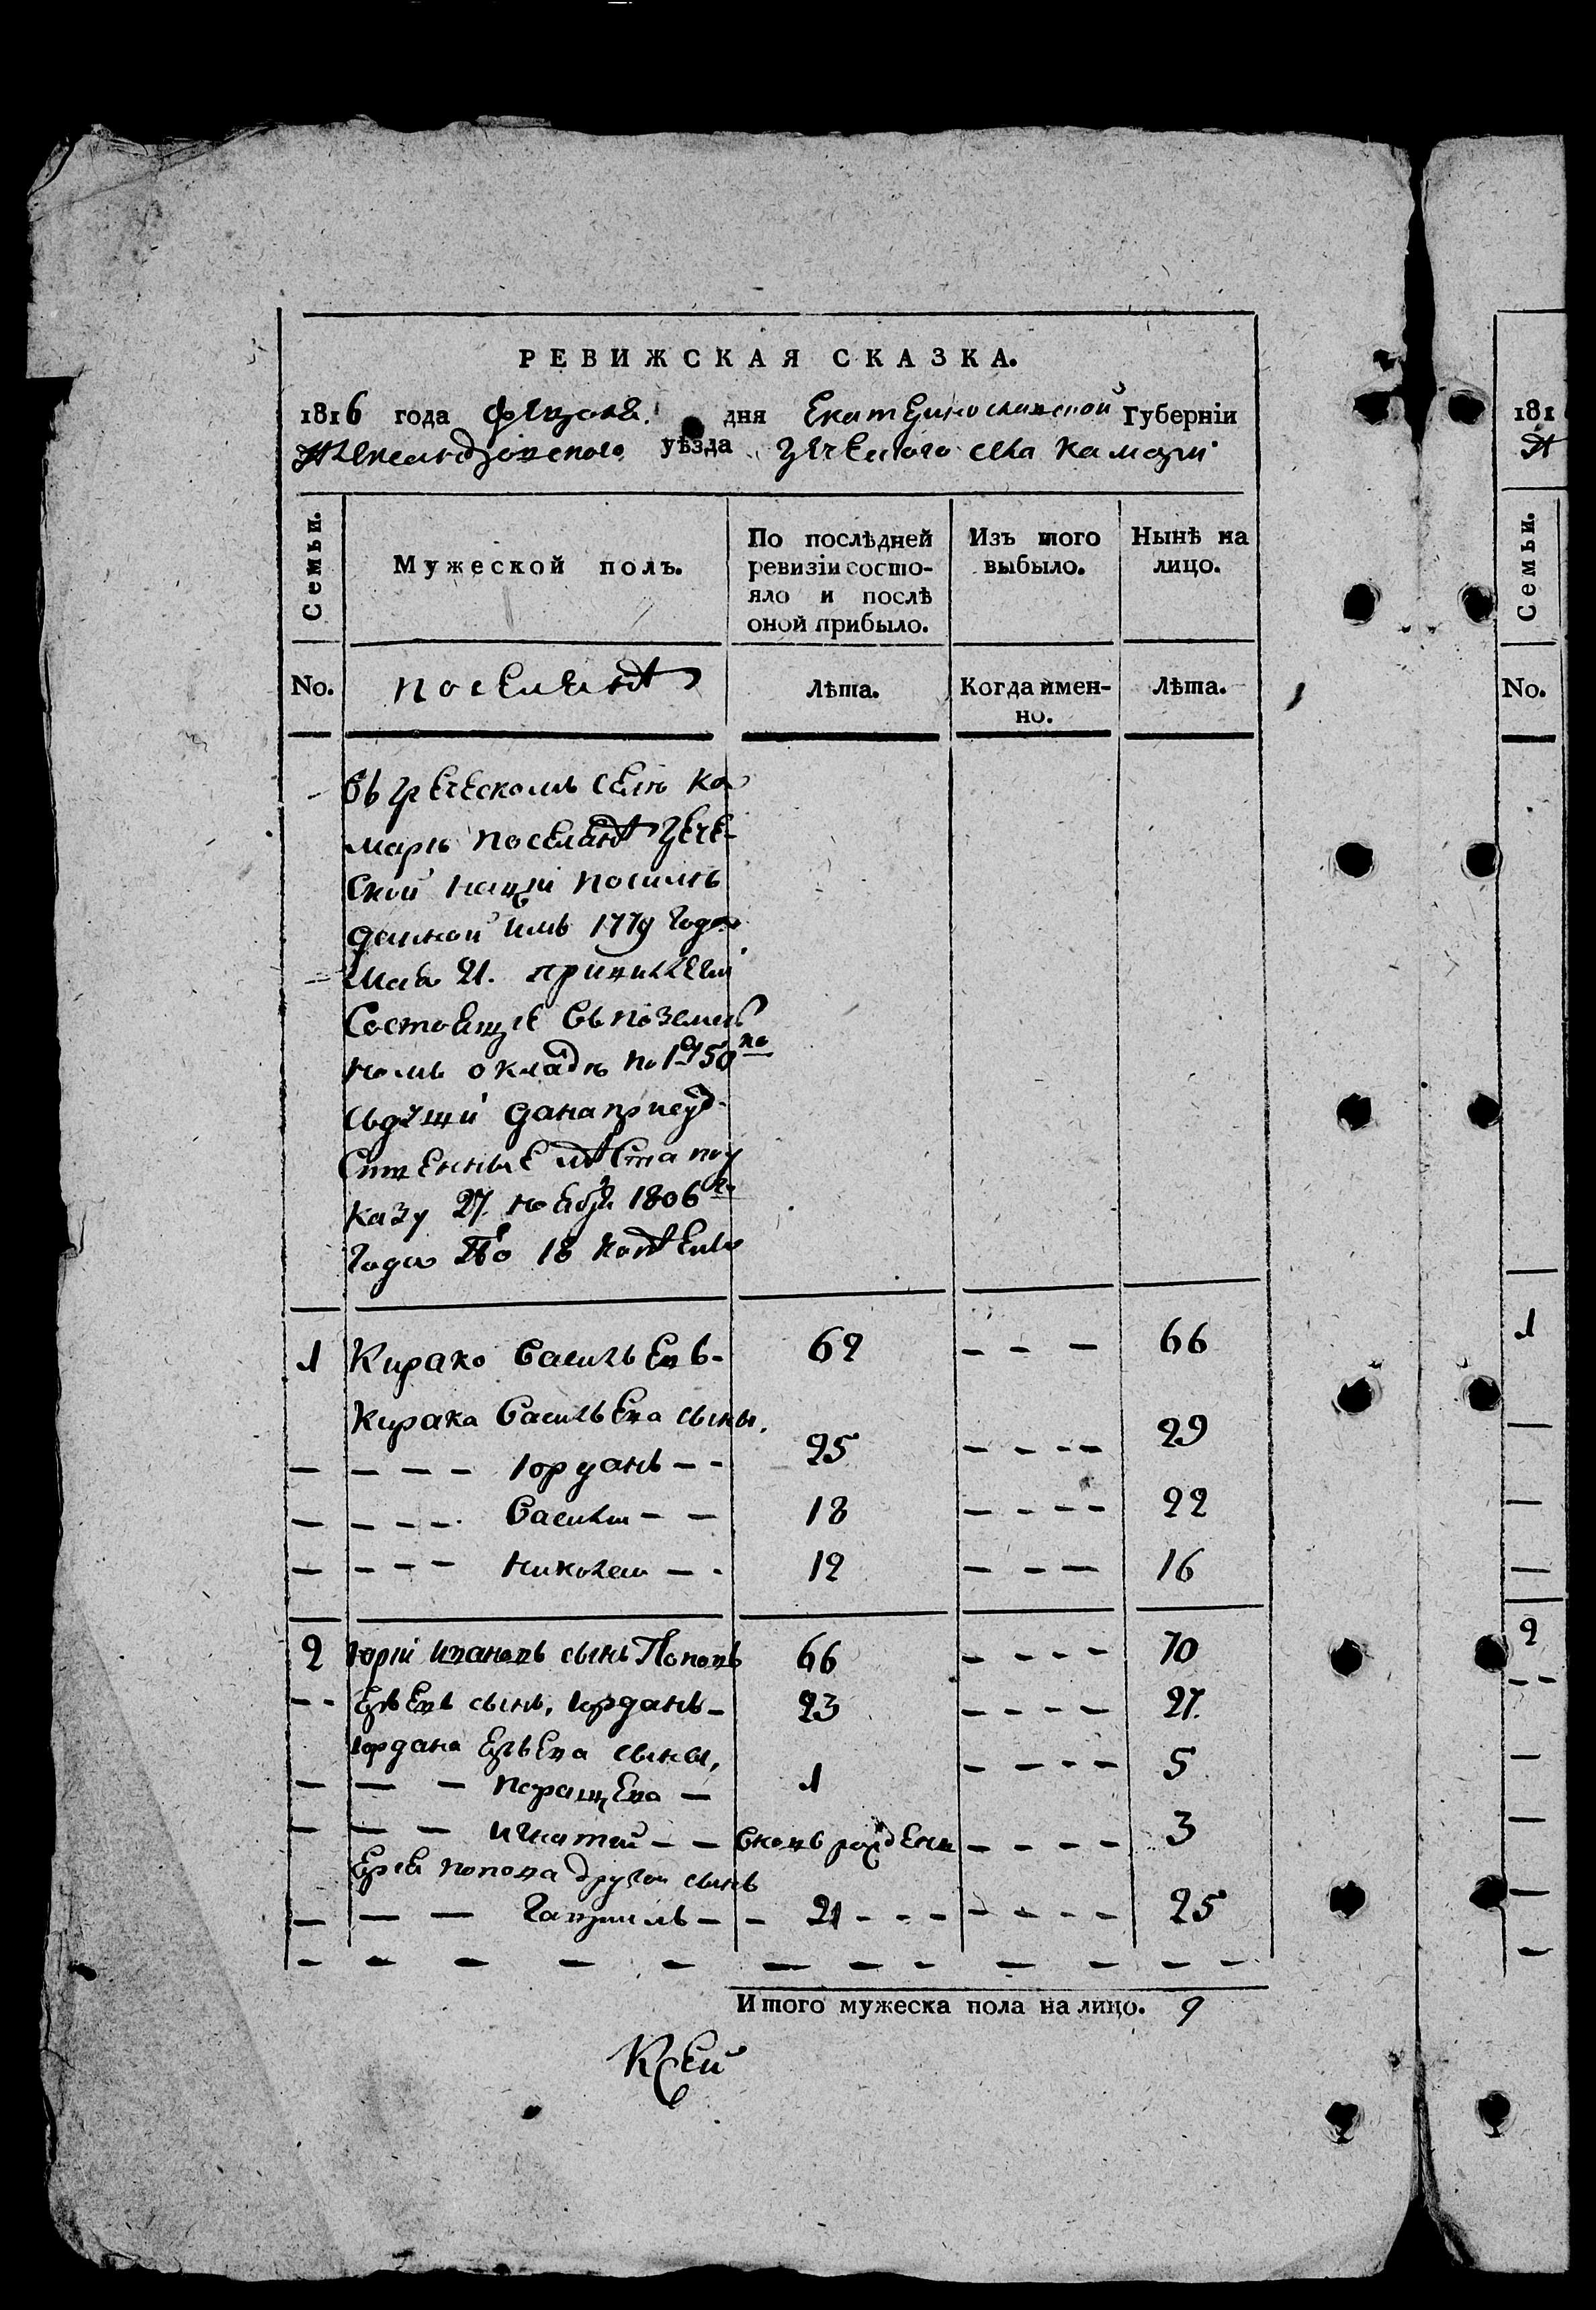 РЕВИЖСКАЯ СКАЗКА.
1816 года февраля дня Екатеринославской Губерніи
Александровскаго уѣзда греческого села Камари
Семьи. Мужеской полъ. По послѣдней ревизіи состояло и послѣ оной прибыло. Изъ того выбыло. Нынѣ на лицо.
No. поселянъ Лѣта. Когда имен-но. Лѣта.
Въ греческомъ селѣ Ка
марѣ поселянъ грече
ской націи посилѣ
данной имъ 1779 года
Маія 21. привилегіи
Состоящіе въ поземель
номъ окладѣ по 1 50 ко
казу 27. ноября 1806го
года
1 Кирако Васильевъ 62 - - - 66
Кирака Васильева сыны,
- - - - Іорданъ - - 25 - - - - 29
- - - - Василій - - 18 - - - - 22
- - - - Николай - - 12 - - - 16
2 Юрій Ивановъ сынъ Поповъ 66 - - - - 70
- - сынъ, Іорданъ - 23 - - - - 27.
Іордана сыны,
- - - - 1 - - - - 5
- - - Игнатій - - вновь рожденъ - - - - 3
Попова другой сынъ
- - - Гавриилъ - - 21 - - - - - - - 25
Итого мужеска пола на лицо. 9
181
Семьи.
No.
1
2